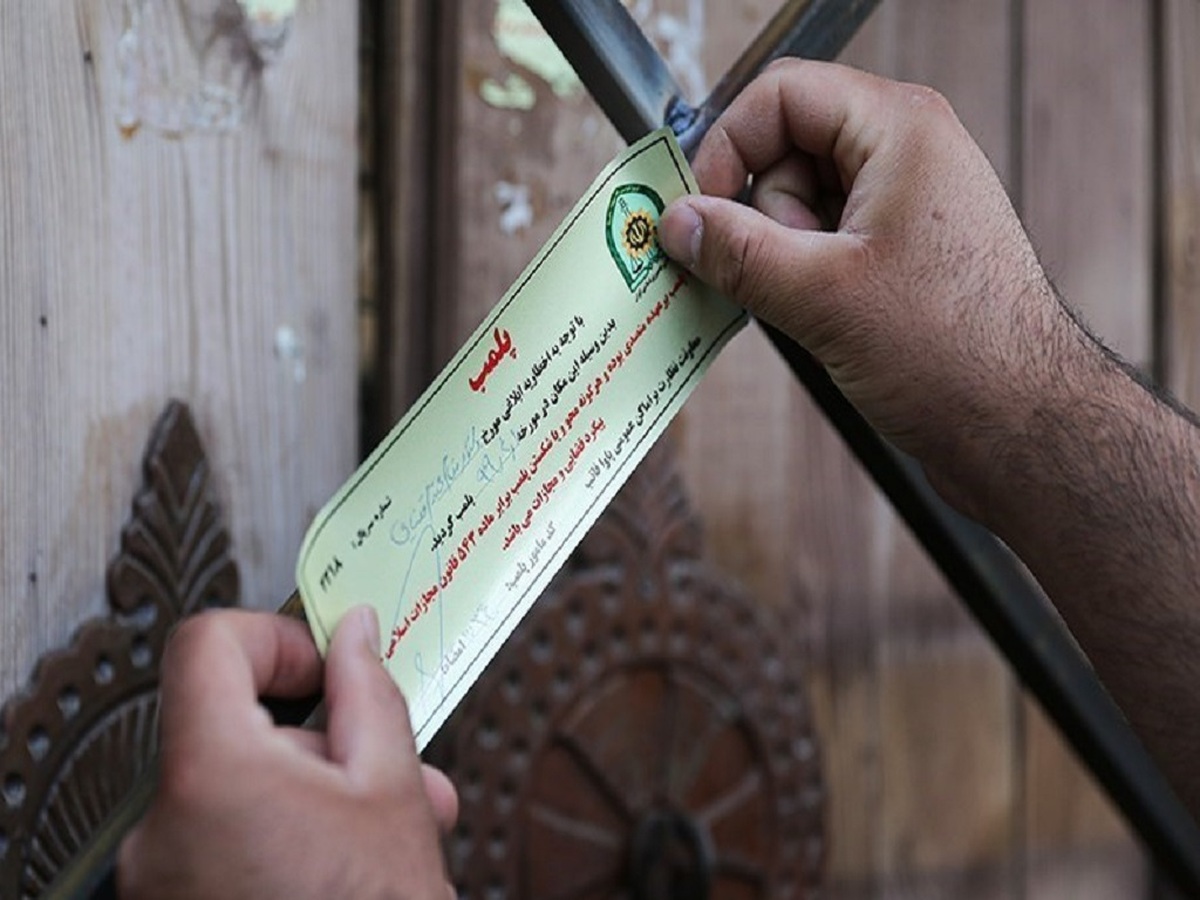 پلمب
با توجه به اخطاریه ابلاغی مورخ
بدین وسیله این مکان در مورخه پلمب گردید.
پلمب بر عهده متصدی بوده و هرگونه محو و یا شکستن پلمب برابر ماده ۵۴۳ قانون مجازات اسلامی
پیگرد قضایی و مجازات می باشد.
معاونت نظارت بر اماکن عمومی پاوا فاتب
شماره سریال:
۲۲۱۸
کد مامور پلمب:
امضاء